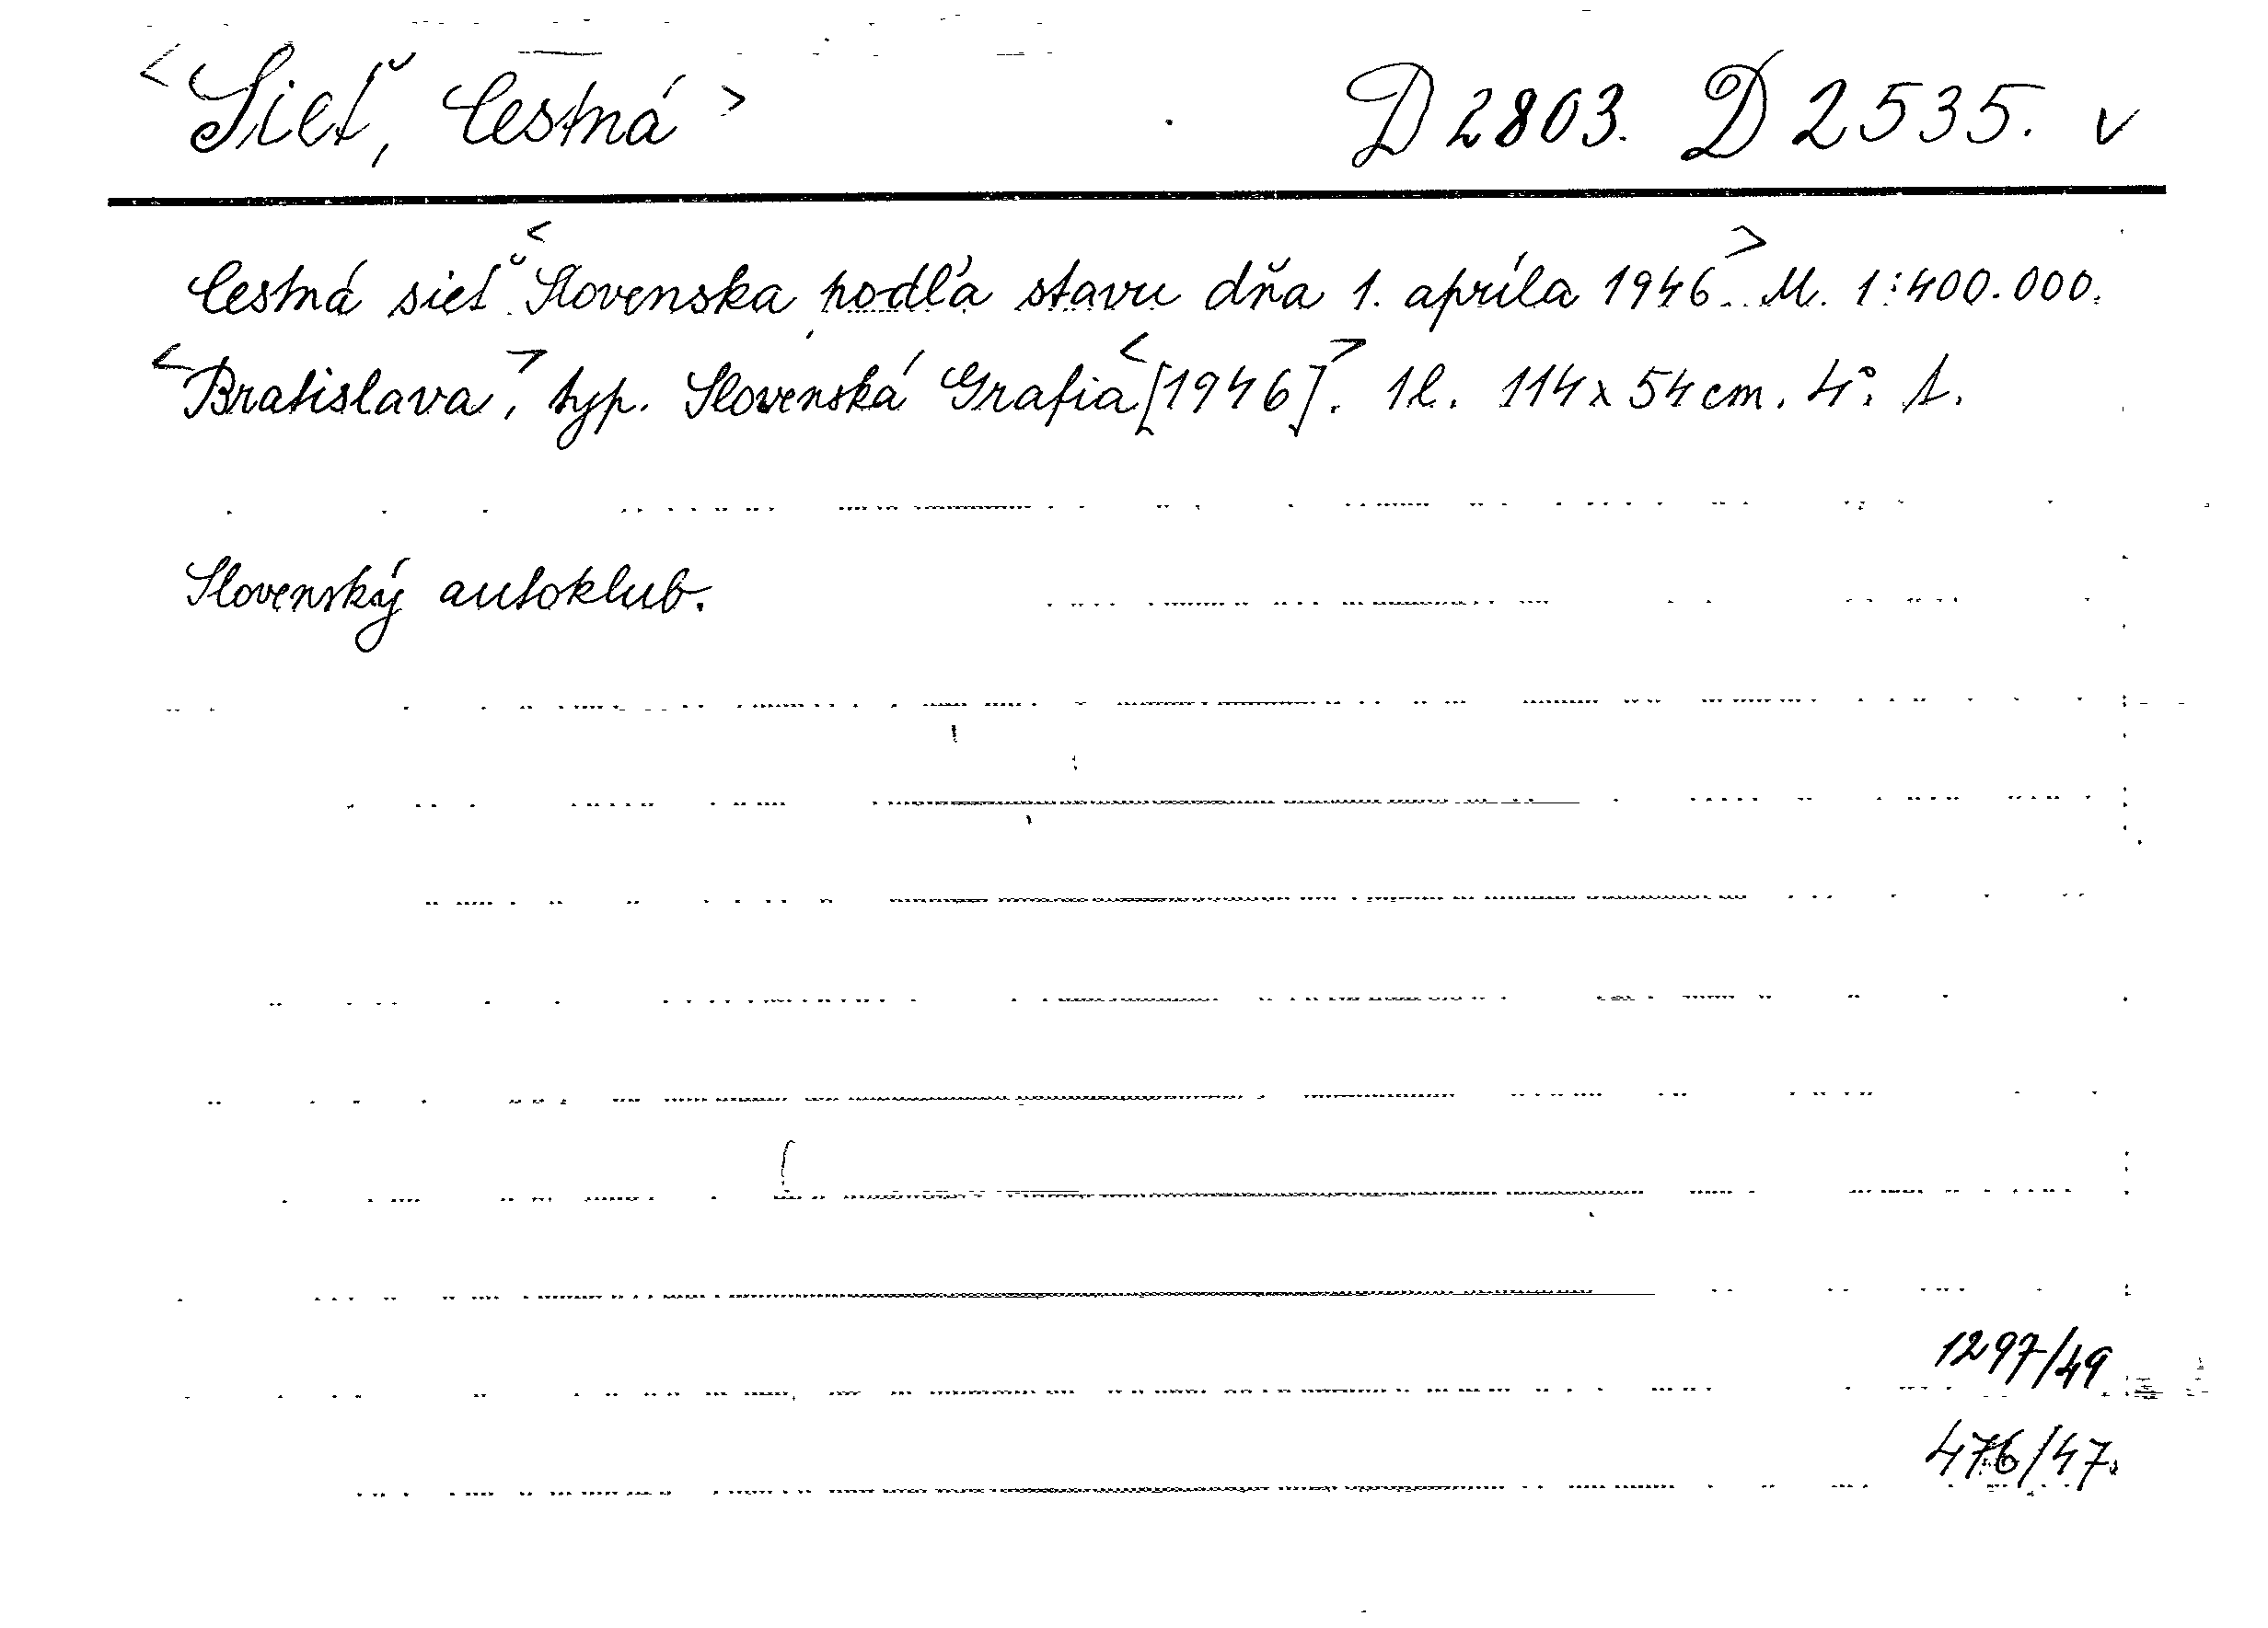 <Sieť, Cestná> D 2803. D 2535. v
Cestná sieť <Slovenska podľa stavu dňa 1. apríla 1946>. M. 1:400.000.
<Bratislava>, typ. Slovenská Grafia <[1946]>. 1 l. 114 x 54 cm. 4°. 1.
Slovenský autoklub.
1297/49
476/47.